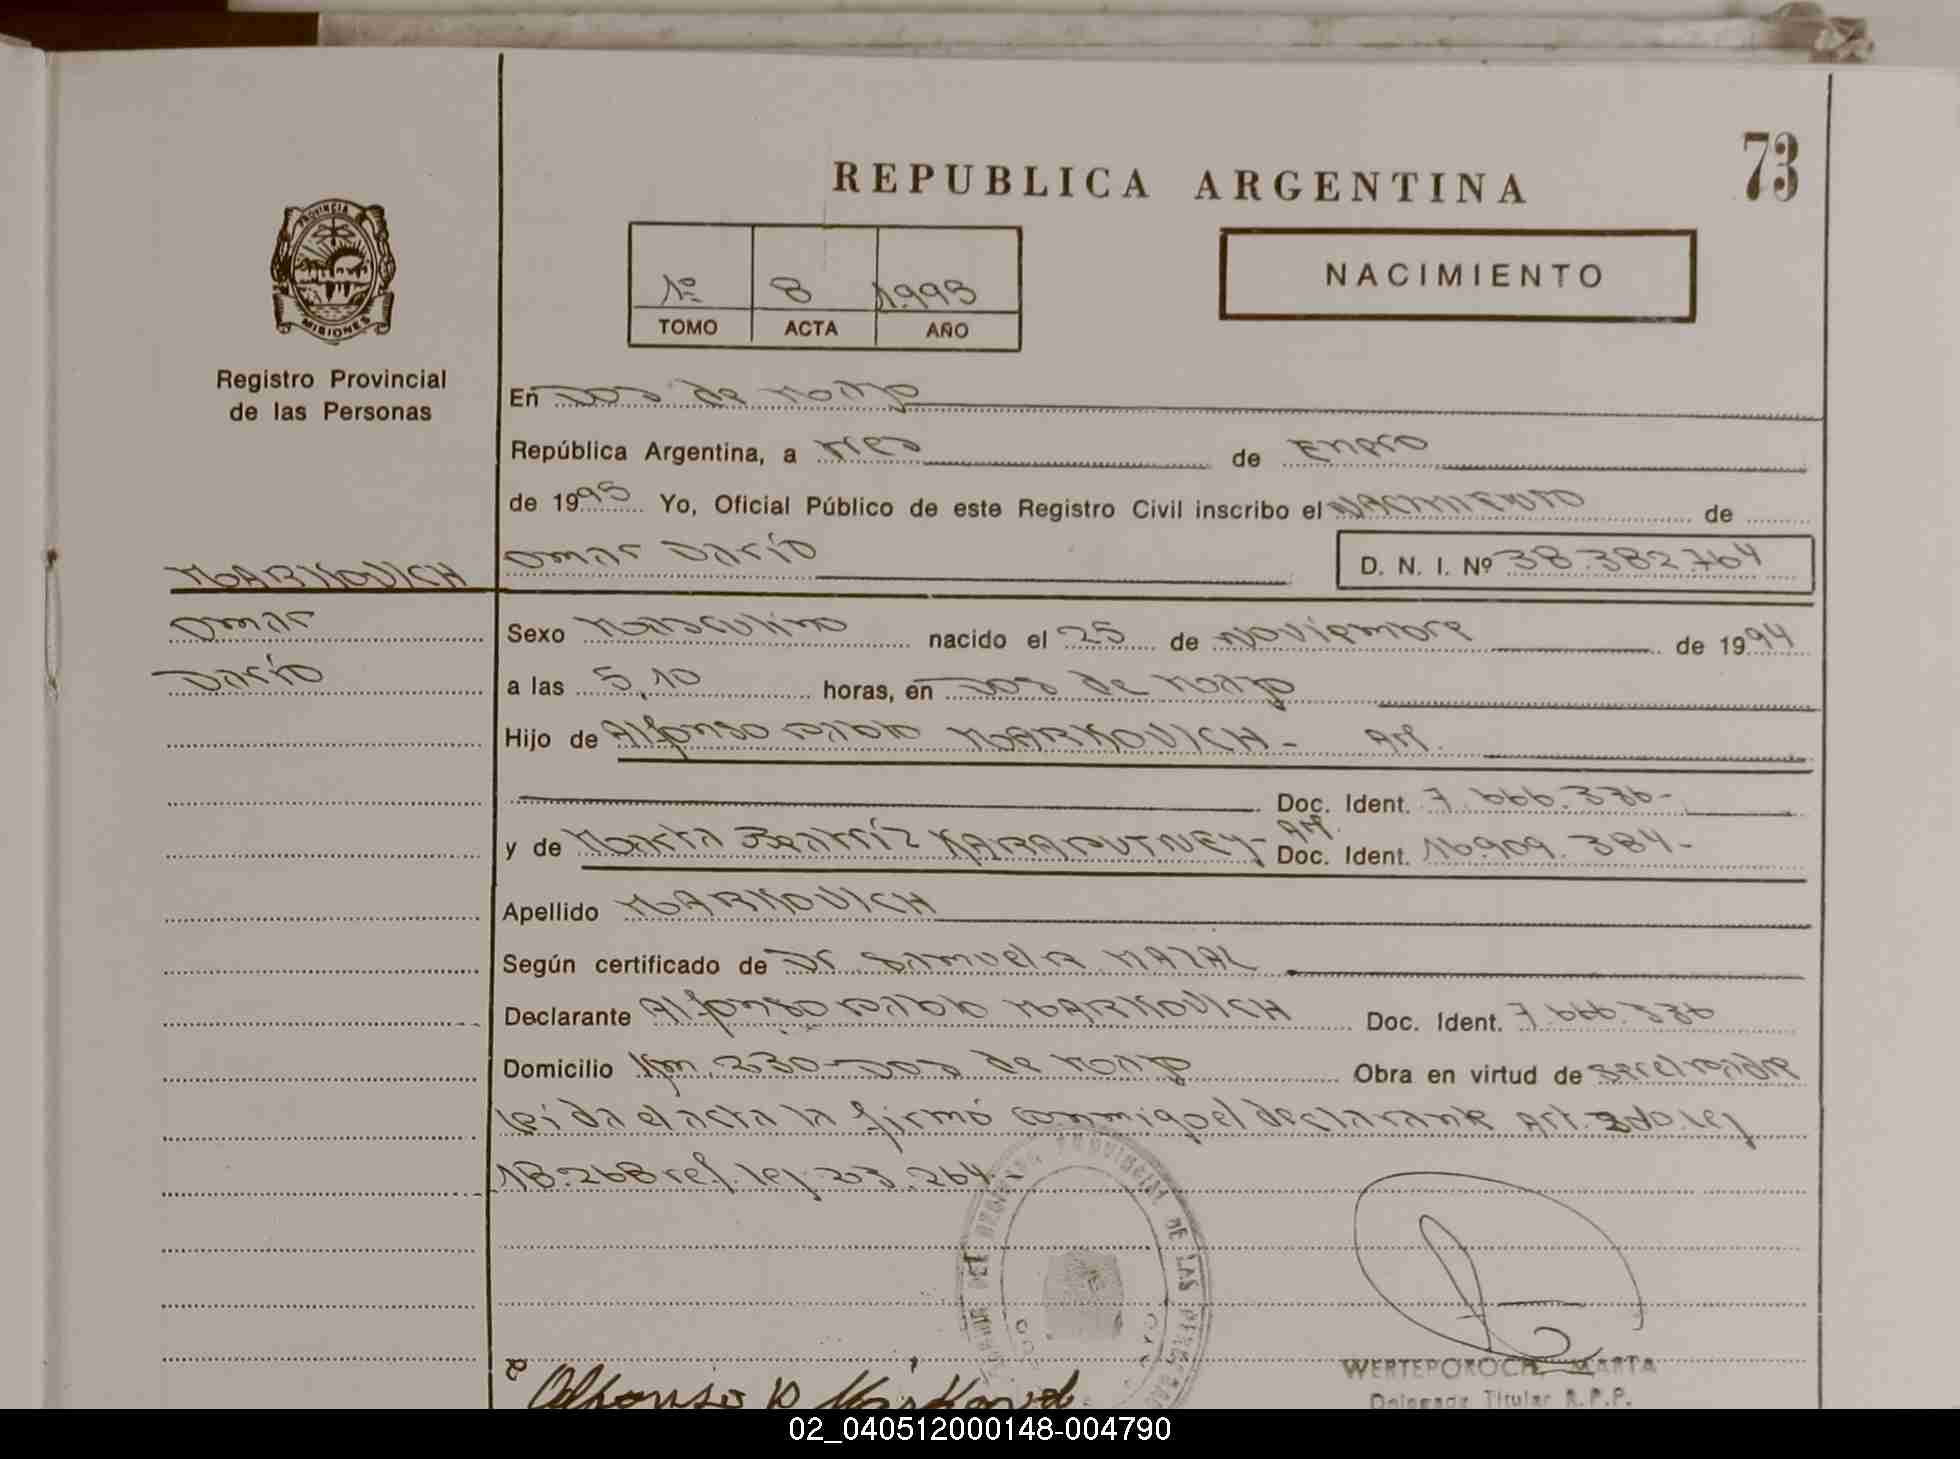 73
REPUBLICA ARGENTINA
PROVINCIA DE
MISIONES
Registro Provincial
de las Personas
1º 8 1.995
TOMO ACTA AÑO
NACIMIENTO
En Dos de Mayo
República Argentina, a tres de Enero
de 1995 Yo, Oficial Público de este Registro Civil inscribo el NACIMIENTO de
MARKOVICH
Omar
Darío
Omar Darío D. N. I. Nº 38.382.764
Sexo Masculino nacido el 25 de Noviembre de 1994
a las 5,10 horas, en Dos de Mayo
Hijo de Alfonso MARKOVICH - Arg.
Doc. Ident. 7.666.336-
y de Marta Beatríz - Arg. Doc. Ident. 16.909.384-
Apellido MARKOVICH
Según certificado de Dr. Samuel MAZAL
Declarante Alfonso MARKOVICH Doc. Ident. 7.666.336
Domicilio Km. 230-Dos de Mayo Obra en virtud de ser el padre
leída el acta la firmó conmigo el declarante Art. 2do. ley
18.268 ref. ley 23.264.
PROVINCIAL DE LAS
WERTEPOROCH, MARTA
Delegada Titular R.P.P.
02_040512000148-004790